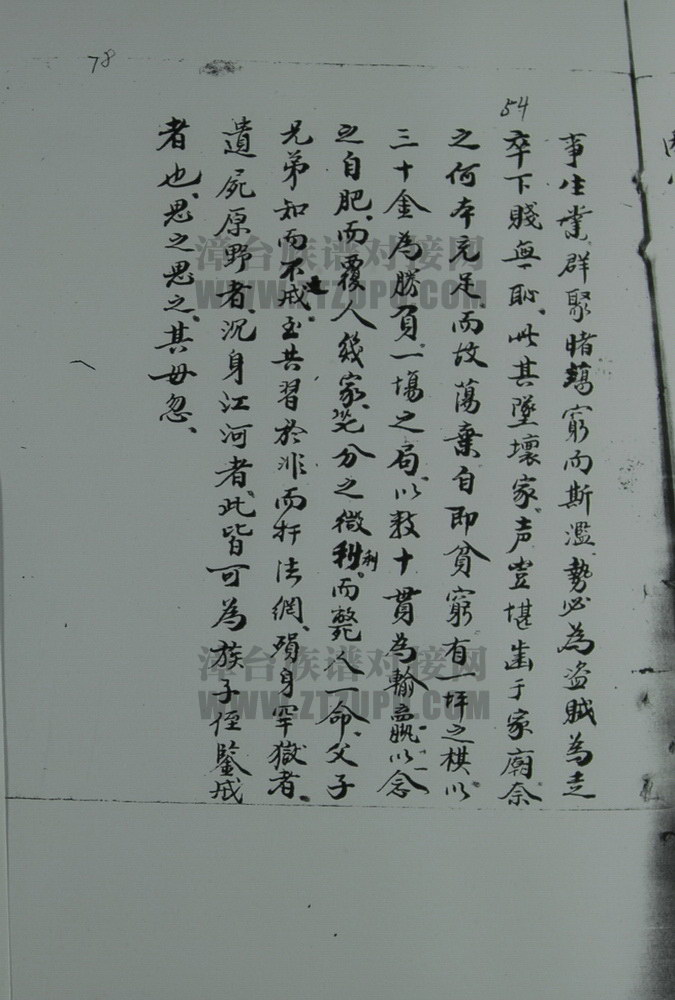 78
54
事生業、群聚賭蕩、窮而斯濫、勢必為盜賊為走
卒、下賤無恥、此其墜壞家声、豈堪齒于家廟、奈
之何本充足、而故蕩棄自即貧窮、有一坪之棋、以
三十金為勝負、一場之局、以数十貫為輸嬴、以念
之自肥、而覆人幾家、分之微利、而斃人一命、父子
兄弟知而不戒、至其習於非而扞法網、殞身罕獄者、
遺屍原野者、沉身江河者、此皆可為族子侄鑒戒
者也、思之思之、其毋忽、
利
漳台族谱对接网
WWW.ZTZUPU.COM
漳台族谱对接网
WWW.ZTZUPU.COM